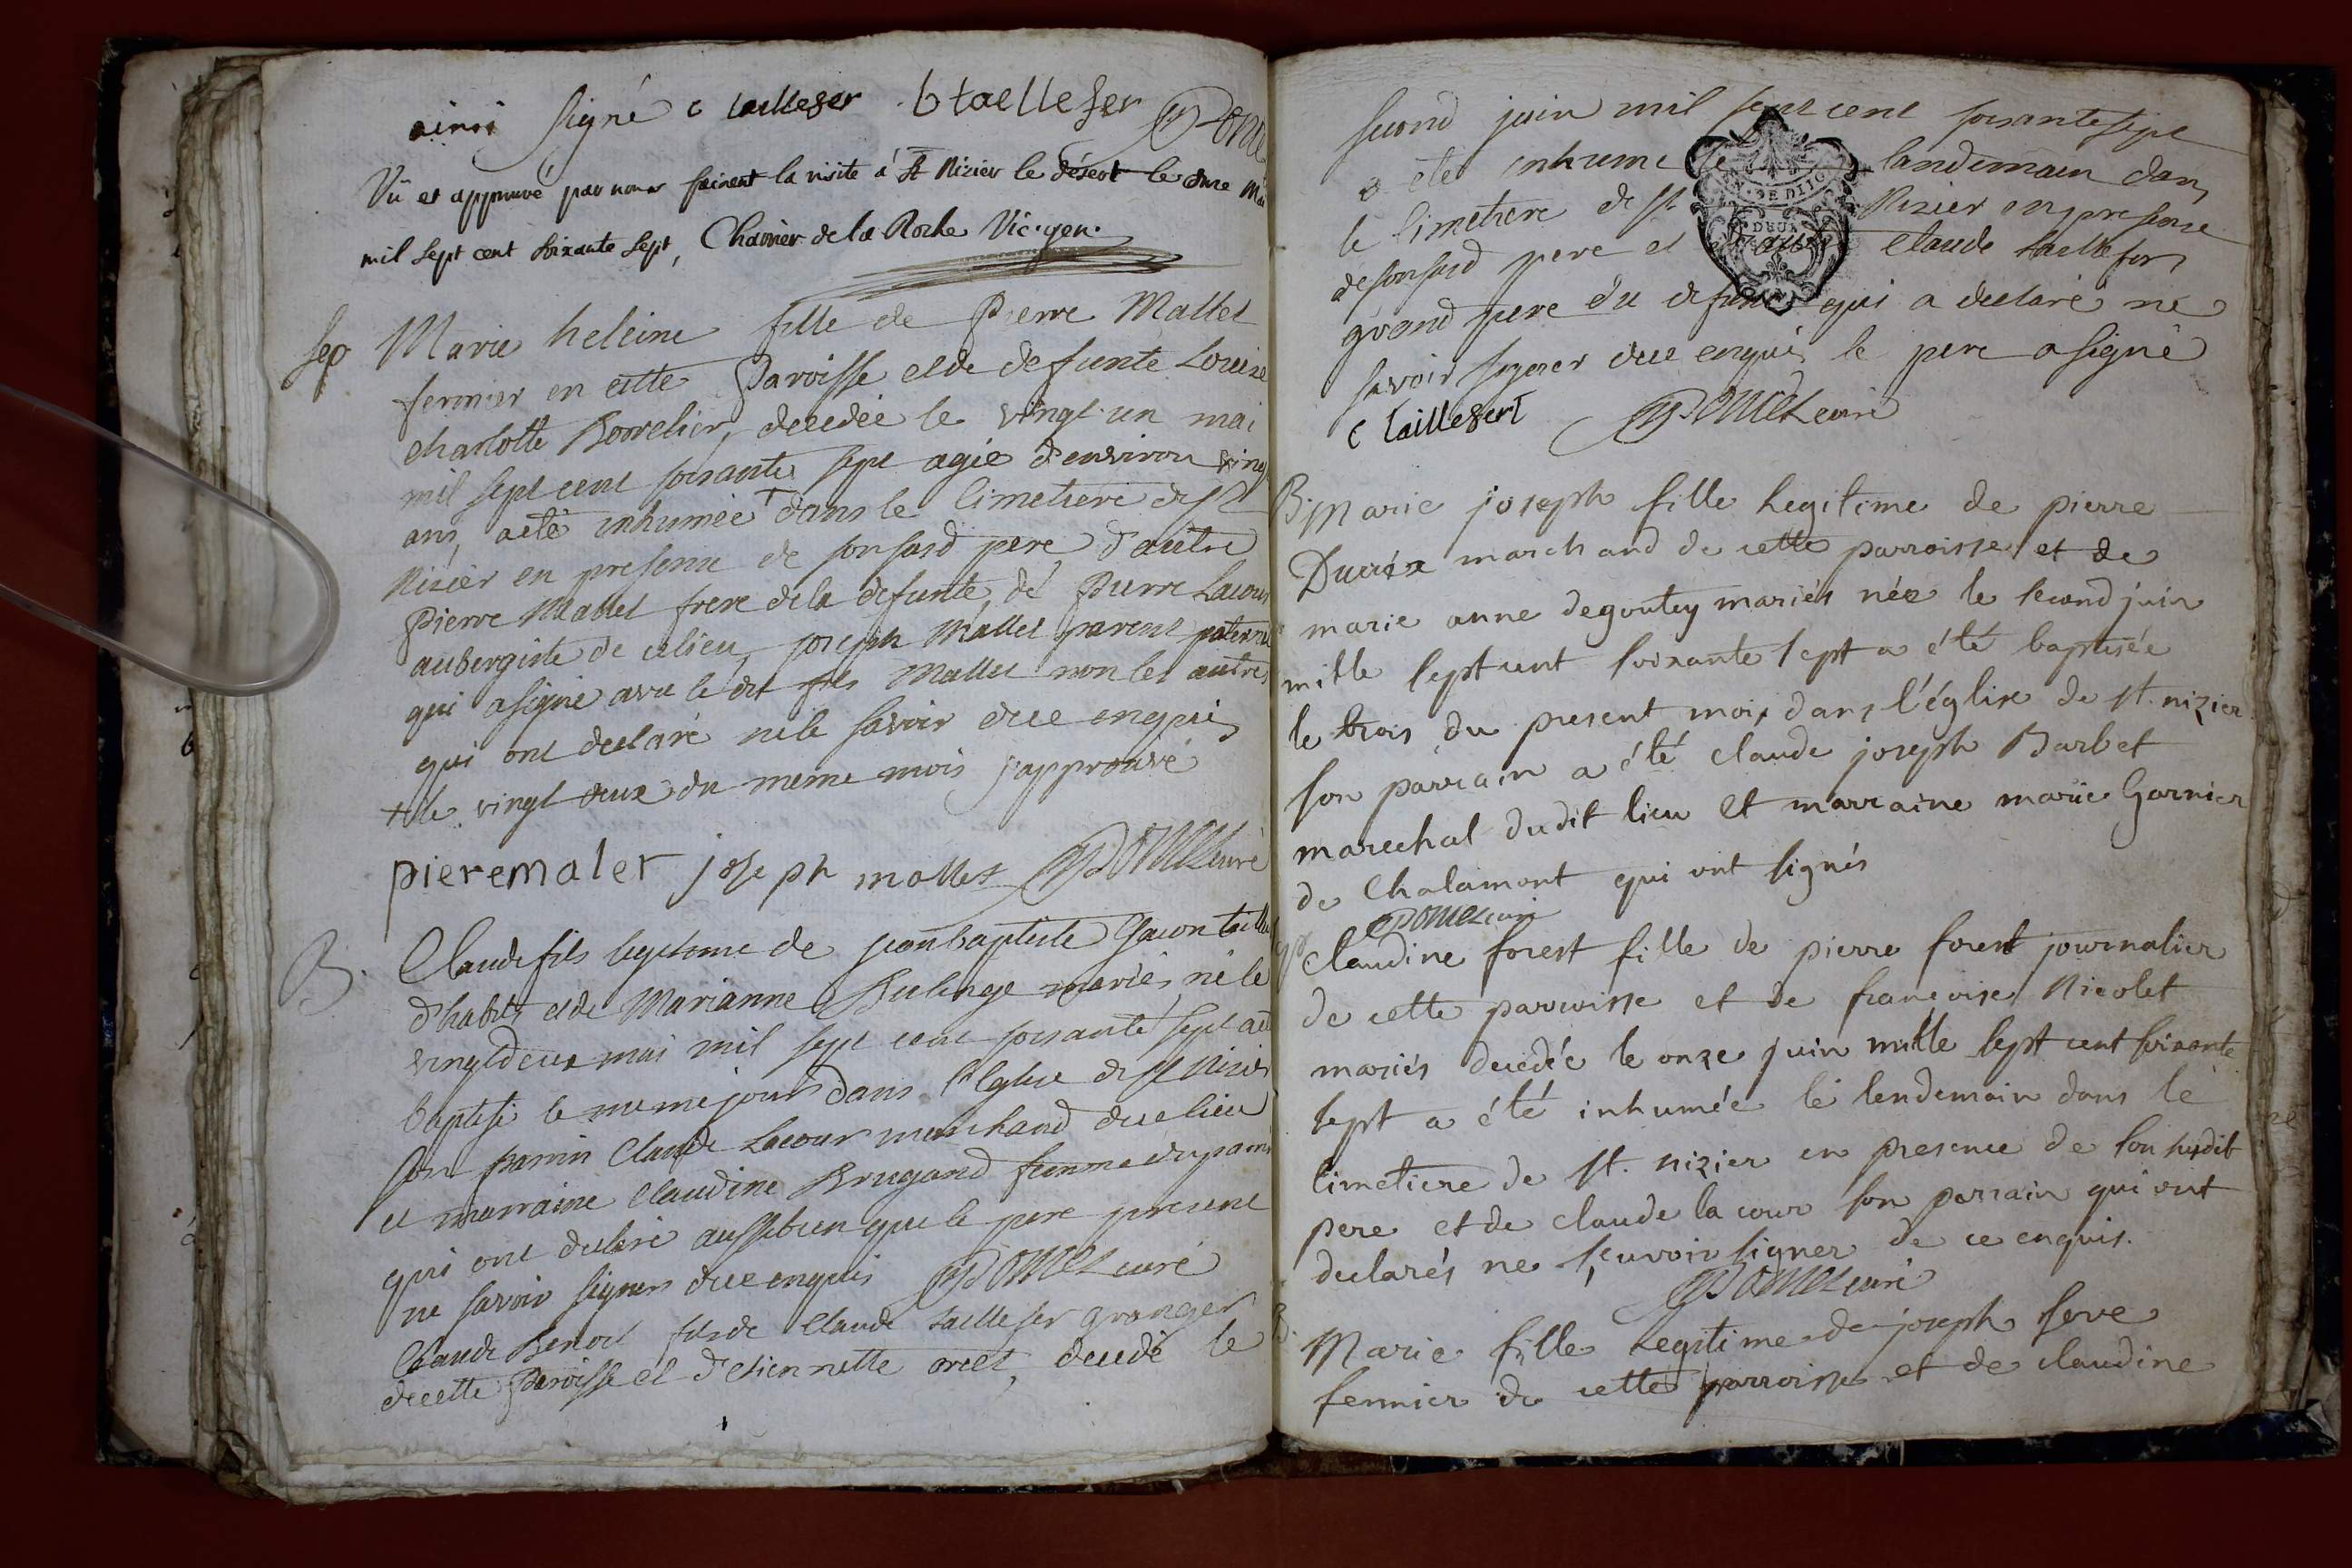 ainsi signé c taillefer b taillefer
Vü et approuvé par nous faisant la visite à St Nizier le désert le onze mai
mil sept cent soixante sept, Charrier de la Roche Vic. gen.
sep Marie heleine fille de Pierre Mallet
fermier en cette Paroisse et de defunte Louise
charlotte Borrelier, decedée le vingt un mai
mil sept cent soisante sept agée d'environ vingt
ans, a eté inhumée + dans le cimetiere de st
Nizier en presence de son susd pere, d'autre
Pierre Mallet frere de la defunte, de Pierre Lacour
aubergiste de ce lieu, joseph Mallet parent paternel
qui a signé avec le dit fils Mallet non les autres
qui ont declaré ne le savoir de ce enquis
+ le vingt deux du meme mois j'approuve
pieremalet joseph mallet Poncet curé
B. Claude fils legitime de jean baptiste Gacon tailleur
d'habits et de Marianne mariés, né le
vingt deux mai mil sept cent soisante sept a eté
baptisé le meme jour dans l'Eglise de st Nizier
son parrin Claude Lacour marchand de ce lieu
et marraine Claudine Brugand femme du parrin
qui ont declaré aussi bien que le pere present
ne savoir signer de ce enquis Poncet curé
Claude Benoit fils de Claude taillefer granger
de cette Paroisse et d'etiennette orset, decedé le
second juin mil sept cent soisante sept
a eté inhumé le landemain dans
le cimetiere de st Nizier en presence
de son susd pere et Claude taillefer
grand pere du defunt qui a declaré ne
savoir signer de ce enquis le pere a signé
c taillefert Poncet curé
B. Marie joseph fille legitime de pierre
Ducrix marchand de cette parroisse et de
marie anne degoutey mariés née le second juin
mille sept cent soixante sept a été baptisée
le trois du present mois dans l'église de st. nizier
son parrain a été claude joseph Barbet
marechal dudit lieu et marraine marie Garnier
de Chalamont qui ont signés
Poncet curé
Claudine forest fille de pierre forest journalier
de cette parroisse et de françoise Nicolet
mariés decedée le onze juin mille sept cent soixante
sept a été inhumée le lendemain dans le
cimetiere de st. nizier en presence de son susdit
pere et de claude la cour son parrain qui ont
declarés ne sçavoir signer de ce enquis.
Poncet curé
B. Marie fille legitime de joseph seve
fermier de cette parroisse et de claudine